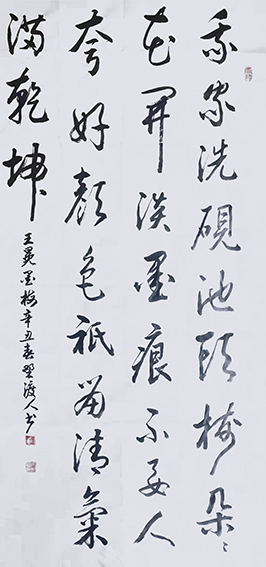 我家洗硯池頭樹朵〻
花開淡墨痕不要人
夸好顏色祇留清氣
滿乾坤
王冕墨梅辛丑春野渡人书